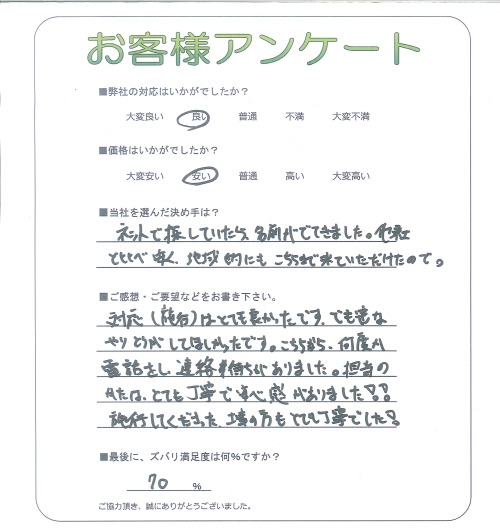 お客様アンケート
■弊社の対応はいかがでしたか？
大変良い 良い 普通 不満 大変不満
■価格はいかがでしたか？
大変安い 安い 普通 高い 大変高い
■当社を選んだ決め手は？
ネットで探していたら、名前がでてきました。他社
とくらべ安く、地域的にもこちらまで来ていただけたので。
■ご感想・ご要望などをお書き下さい。
対応（施工）はとても良かったです。でも
やりとりがしてほしかったです。こちらから、何度か
電話をし、連絡待ちがありました。担当の
方は、とても丁寧で 感がありました!!
施行してくださった、工事の方もとても丁寧でした。
■最後に、ズバリ満足度は何％ですか？
70 ％
ご協力頂き、誠にありがとうございました。